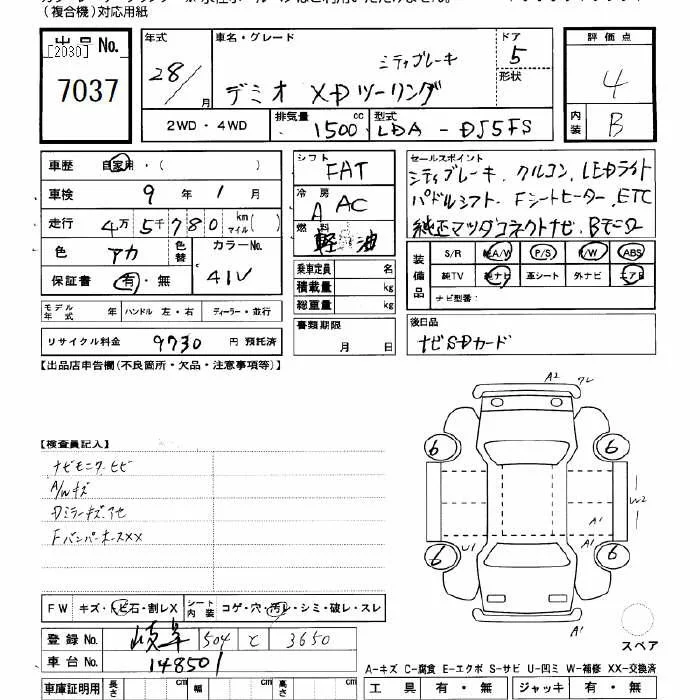 (複合機)対応用紙
出品No. 年式 車名・グレード ドア 評価点
[2030] シティブレーキ 5
7037 28/月 デミオ XDツーリング 形状 4
2WD・4WD 排気量 1500 cc 型式 LDA-DJ5FS 内装 B
車歴 自家用・( ) シフト FAT セールスポイント
車検 9年1月 冷房 AAC シティブレーキ、クルコン、LEDライト
走行 4万5千780km マイル( ) 燃料 軽油 パドルシフト、Fシートヒーター、ETC
純正マツダコネクトナビ、Bモニター
色 アカ 色替 カラーNo. 41V
保証書 有・無
乗車定員 名 装備品 S/R 純A/W P/S P/W ABS
積載量 kg 純TV 純ナビ 革シート 外ナビ エアB
総重量 kg ナビ型態:
モデル年式 年 ハンドル 左・右 ディーラー・並行
書類期限 月 日 後日品
リサイクル料金 9730 円 預託済 ナビSDカード
【出品店申告欄(不良箇所・欠品・注意事項等)】
A2
【検査員記入】
ナビモニターヒビ
A/Wキズ
Dミラーキズアセ
FバンパーホースXX
6 6
W2
A1
U1 A1
6 6
A1
スペア
FW キズ・トビ石・割レX シート内装 コゲ・穴・汚レ・シミ・破レ・スレ
登録No. 岐阜 504 と 3650
車台No. 148501
A-キズ C-腐食 E-エクボ S-サビ U-凹ミ W-補修 XX-交換済
車庫証明用 長さ cm 幅 cm 高さ cm 工具 有・無 ジャッキ 有・無